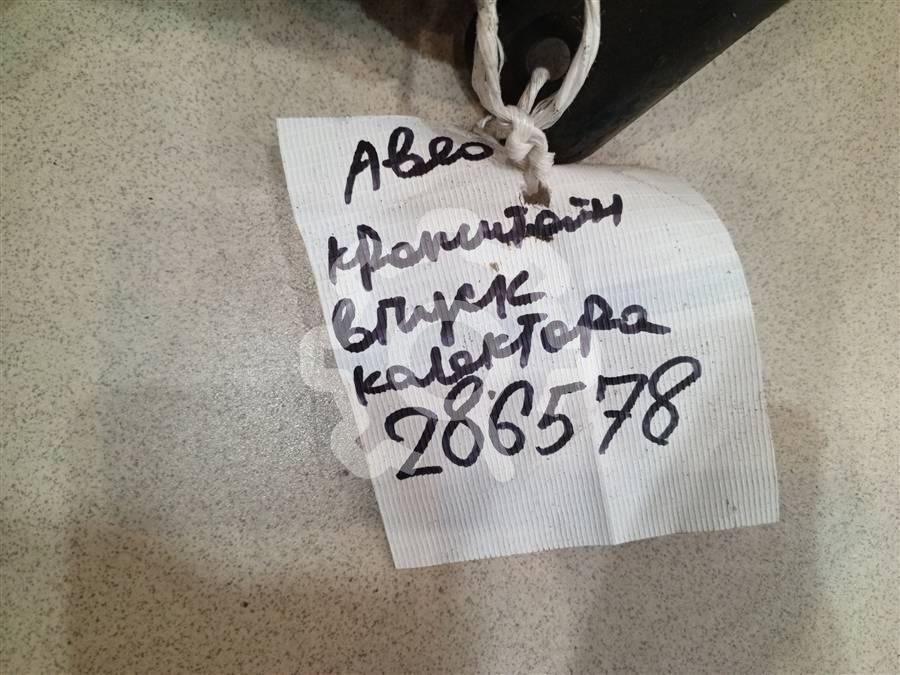 Авео
кронштейн
впуск
колектора
286578